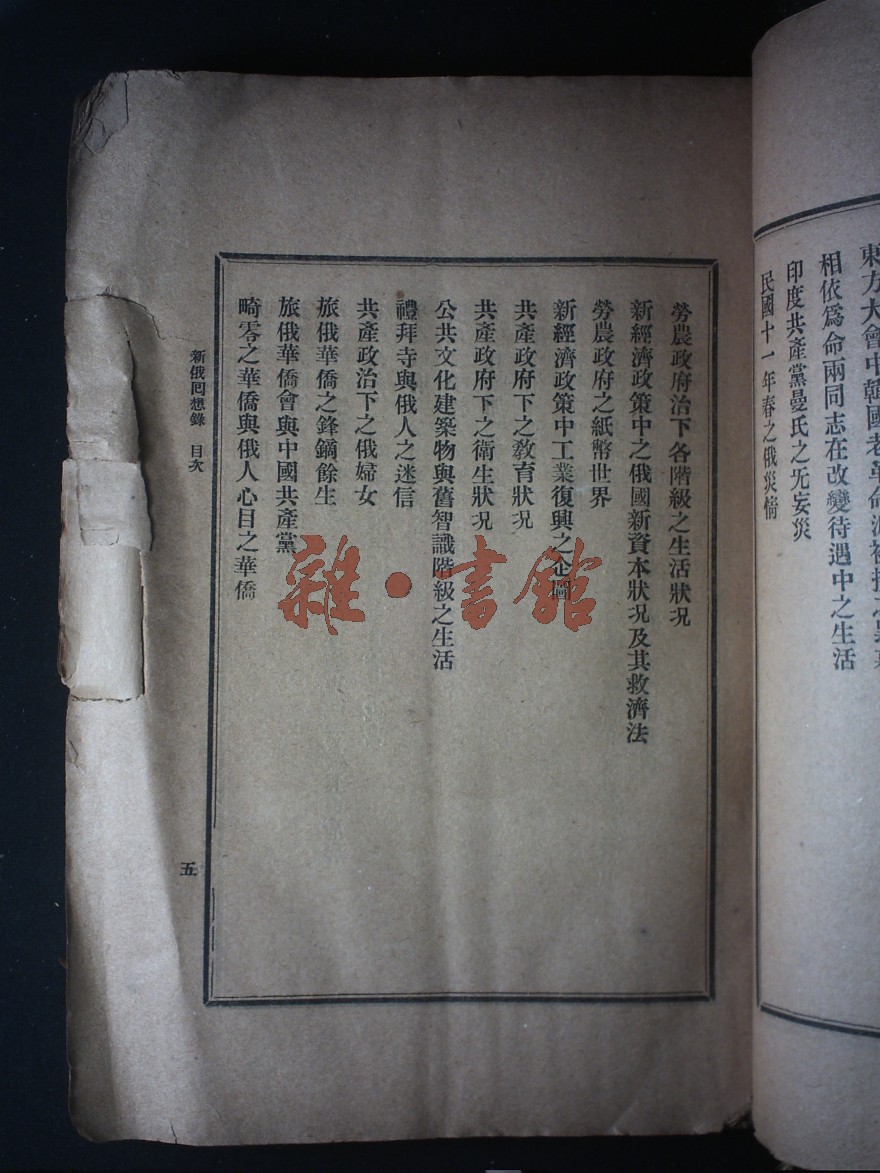 東方大會中韓國老革命派
相依爲命兩同志在改變待遇中之生活
印度共產黨曼氏之无妄災
民國十一年春之俄災情
勞農政府治下各階級之生活狀况
新經濟政策中之俄國新資本狀况及其救濟法
勞農政府之紙幣世界
新經濟政策中工業復興之企圖
共產政府下之教育狀况
共產政府下之衛生狀况
公共文化建築物與舊智識階級之生活
禮拜寺與俄人之迷信
共產政治下之俄婦女
旅俄華僑之鋒鏑餘生
旅俄華僑會與中國共產黨
畸零之華僑與俄人心目之華僑
新俄囘想錄 目次
五
雜·書館